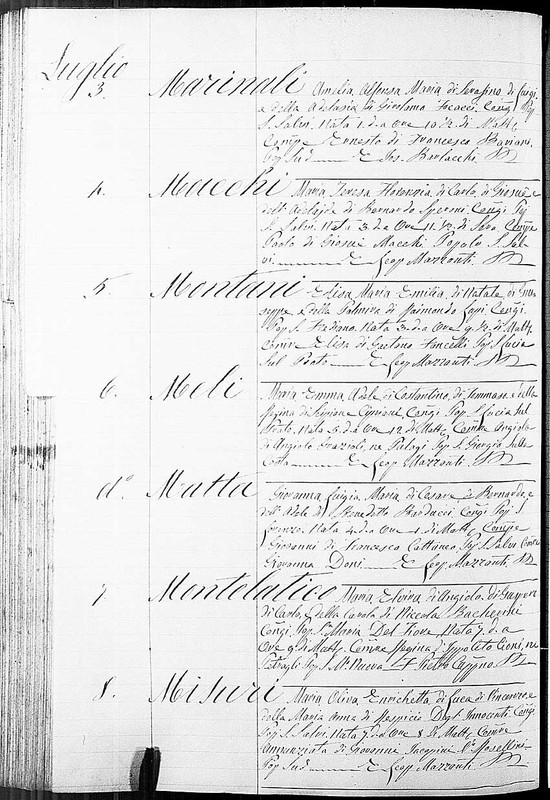 Luglio
3. Marinali Amelia Alfonsa Maria di Serafino, di Luigi,
e della Adelasia di Girolamo Conj. Pop.
S. Salvi. Nata 1. d.o Ore 10 ½ di Matt.
Comp.e Ernesto di Francesco Baviani,
Pop. Sud. E Gio. Bartacchi
4. Macchi Maria Teresa Florenzia, di Carlo, di Giosuè e
dell' Adelaide di Bernardo Speroni Conj. Pop.
S. Salvi. Nata 3. d.o Ore 11 ½ di Sera. Comp.e
Paolo di Giosuè Macchi Popolo S. Sal
vi E Leop. Mazzanti
5. Montani Elisa Maria Emilia, di Natale, di Giu
seppe, e della Palmira di Raimondo Lapi Conj.
Pop. S. Frediano. Nata 3. d.o Ore 9 ½ di Matt.
Com.re Elisa di Gaetano Fancelli Pop. S. Lucia
Sul Prato E Leop. Mazzanti
6. Meli Maria Emma Adele di Costantino, di Tommaso e della
Regina di Scipione Cipriani Conj. Pop. S. Lucia Sul
Prato. Nata 5. d.o Ore 12 di Matt. Com.re Angiola
di Angiolo Grazioli, ne' Pelagi Pop. S. Giorgio Sulla
Costa E Leop. Mazzanti
d.o Matta Giovanna Luigia Maria di Cesare, di Bernardo, e
dell' Adele di Benedetto Barducci Conj. Pop. S.
Lorenzo. Nata 4. d.o Ore 1. di Matt. Comp.e
Giovanni di Francesco Cattaneo Pop. S. Salvi Com.re
Giovanna Doni. E Leop. Mazzanti
7. Montelatico Maria Elvira di Angiolo, di Gaspero
di Carlo, e della Carola di Niccola Bacherini
Conj. Pop. S. Maria Del Fiore. Nata 7. d.o
Ore 9. di Matt. Com.re Regina d' Ippolito Cioni, ne'
Petragli Pop. S. M.a Nuova Pietro
8. Misuri Maria Oliva Enrichetta di Luca di Vincenzo, e
della Maria Anna di Ospizio Degl' Innocenti Conj.
Pop. S. Salvi. Nata 7. d.o Ore 8 di Matt. Com.re
Annunziata di Giovanni Jacopini
Pop. Sud. E Leop. Mazzanti